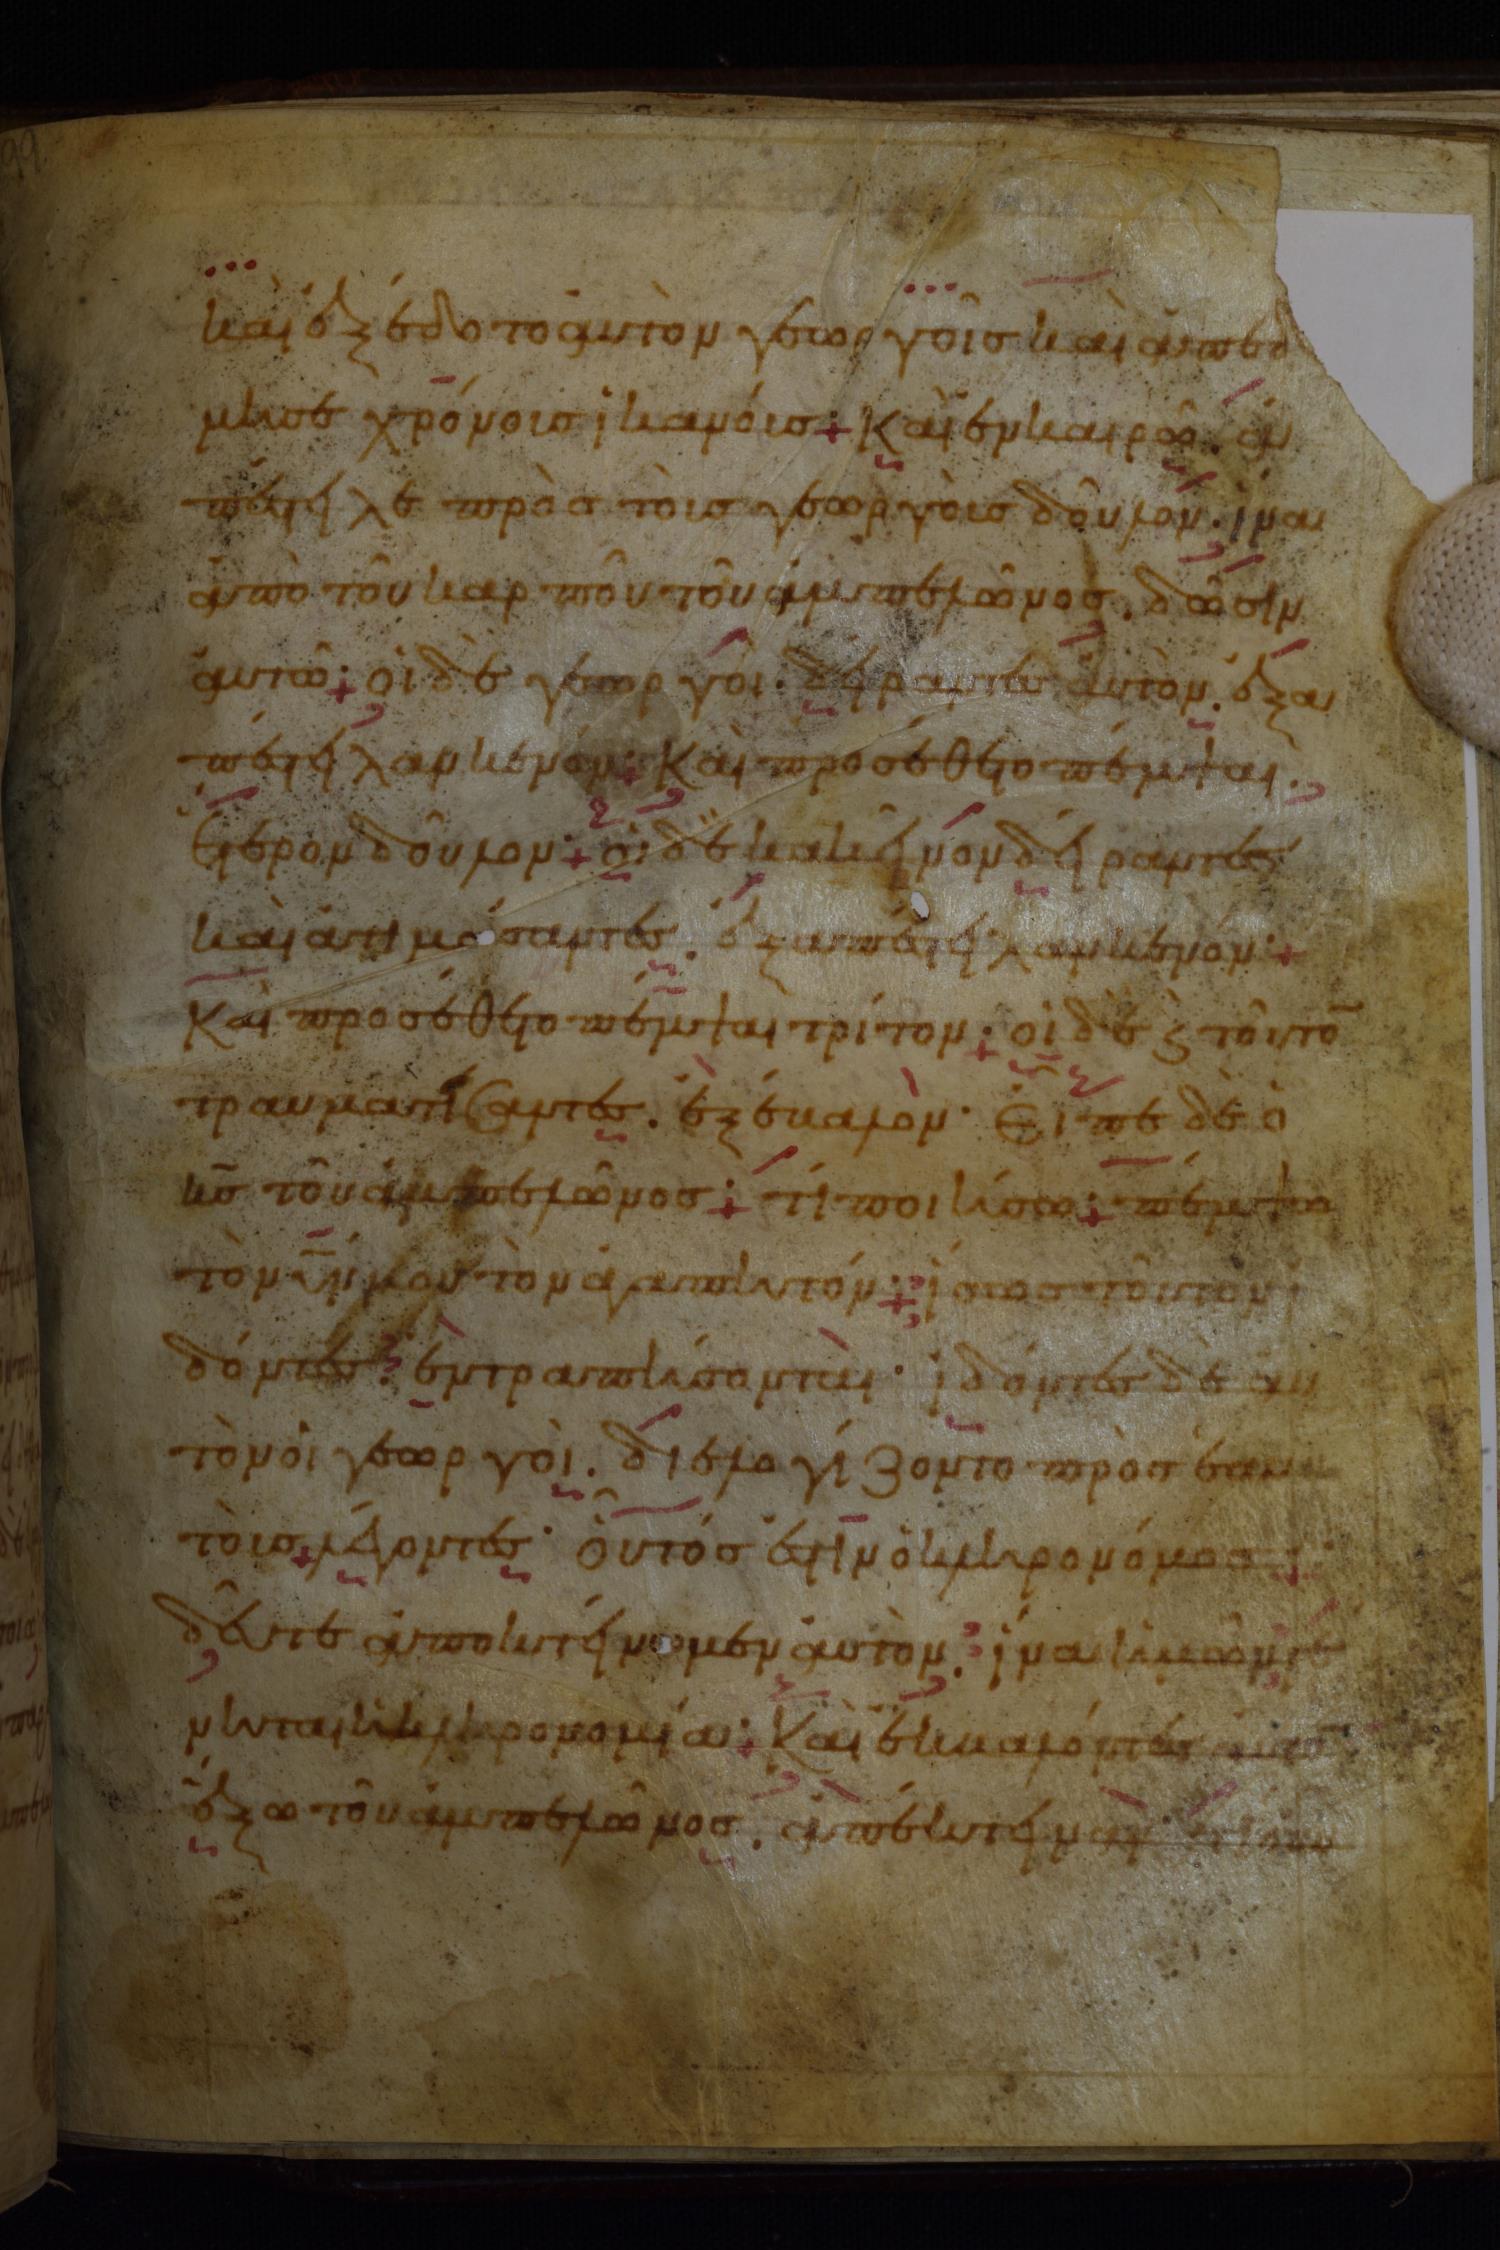 καὶ ἐξέδοτο ἀυτὸν γεωργοῖς καὶ ἀπεδ
μησε χρόνοις ἱκανόις· Καὶ ἐν καιρῶ. ἀ
πέστειλε πρὸς τὸυς γεωργὸυς δοῦλον. ἵνα
ἀπὸ τοῦ καρποῦ τοῦ ἀμπελῶνος. δῶσιν
ἀυτῶ· οἱ δὲ γεωργοὶ. δείραντες ἀυτὸν. ἐξα
πέστειλαν κενόν· Καὶ προσέθετο πέμψαι.
ἕτερον δοῦλον· οἱ δὲ κακεῖνον δείραντες
καὶ ἀτιμάσαντες. ἐξαπέστειλαν κενόν·
Καὶ προσέθετο πέμψαι τρίτον· οἱ δὲ ϗ τοῦτο̄
τραυματίσαντες. ἐξέβαλὸν· Εἶπε δὲ ὁ
κ̄ς τοῦ ἀμπελῶνος· τί ποιήσω· πέμψω
τὸν ῡν μου τὸν ἀγαπητόν· ἴσως τοῦτον ἰ
δόντες· ἐντραπήσονται· ἰδόντες δὲ ἀυ
τὸν οἱ γεωργοὶ. διελογίζοντο πρὸς ἑαυ
τὸυς λέγοντες· οὗτός ἐστιν ὁ κληρονόμος·
δεῦτε ἀποκτείνωμεν ἀυτὸν. ἵνα ἡμῶν γέ
νηται ἡ κληρονομία· Καὶ ἐκβαλόντες ἀυτὸ̄
ἔξω τοῦ ἀμπελῶνος. ἀπέκτειναν· τί οὖν